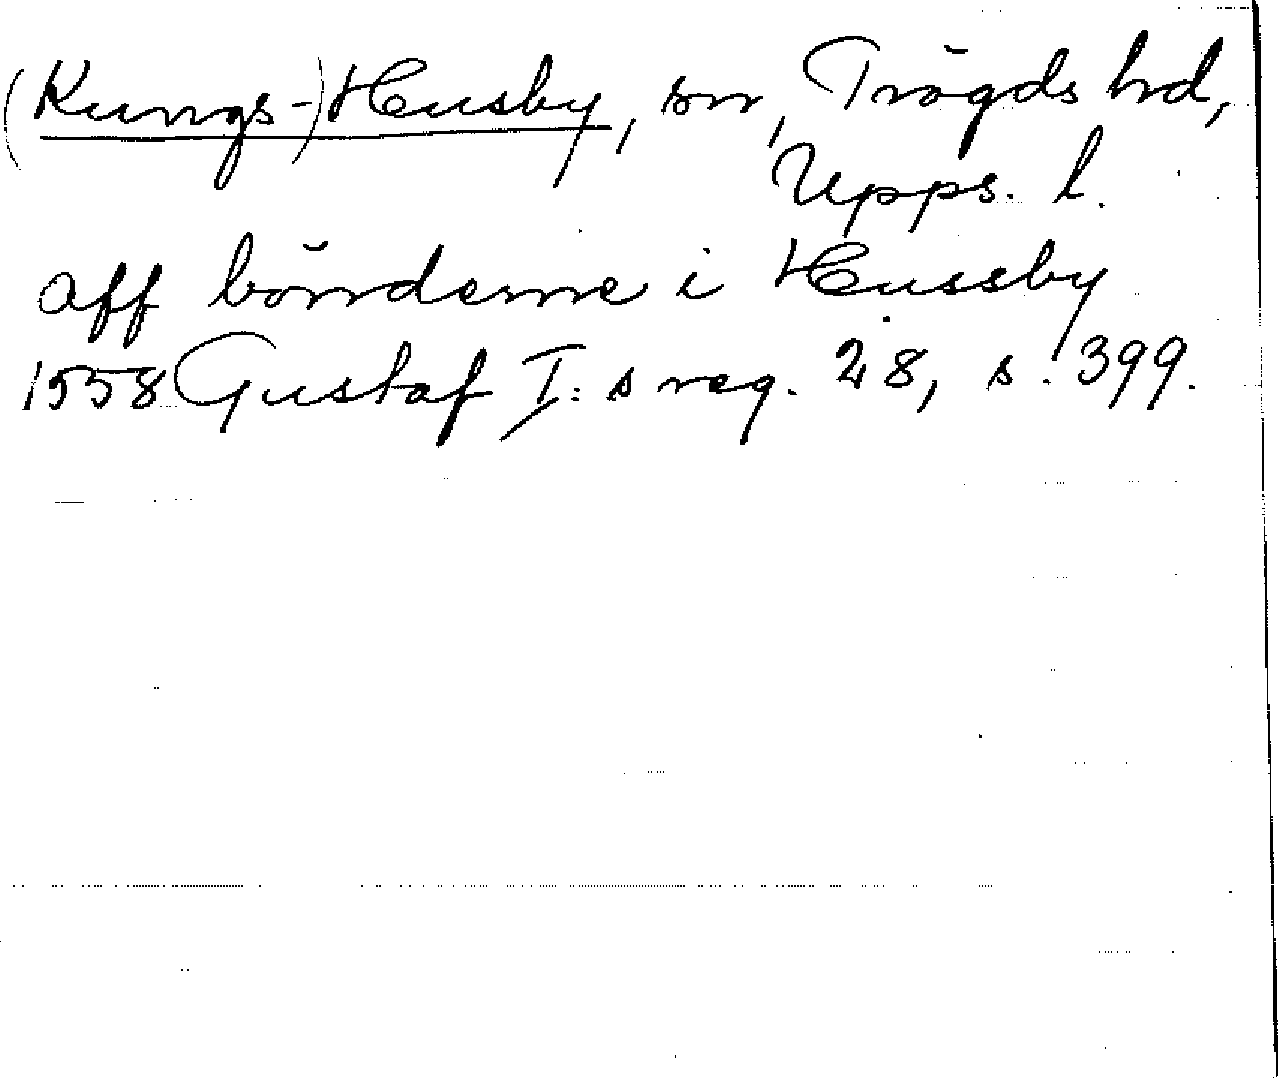 (Kungs-)Husby, sn, Trögds hrd,
Upps. l.
aff bönderne i Hussby
1558 Gustaf I:s reg. 28, s. 399.